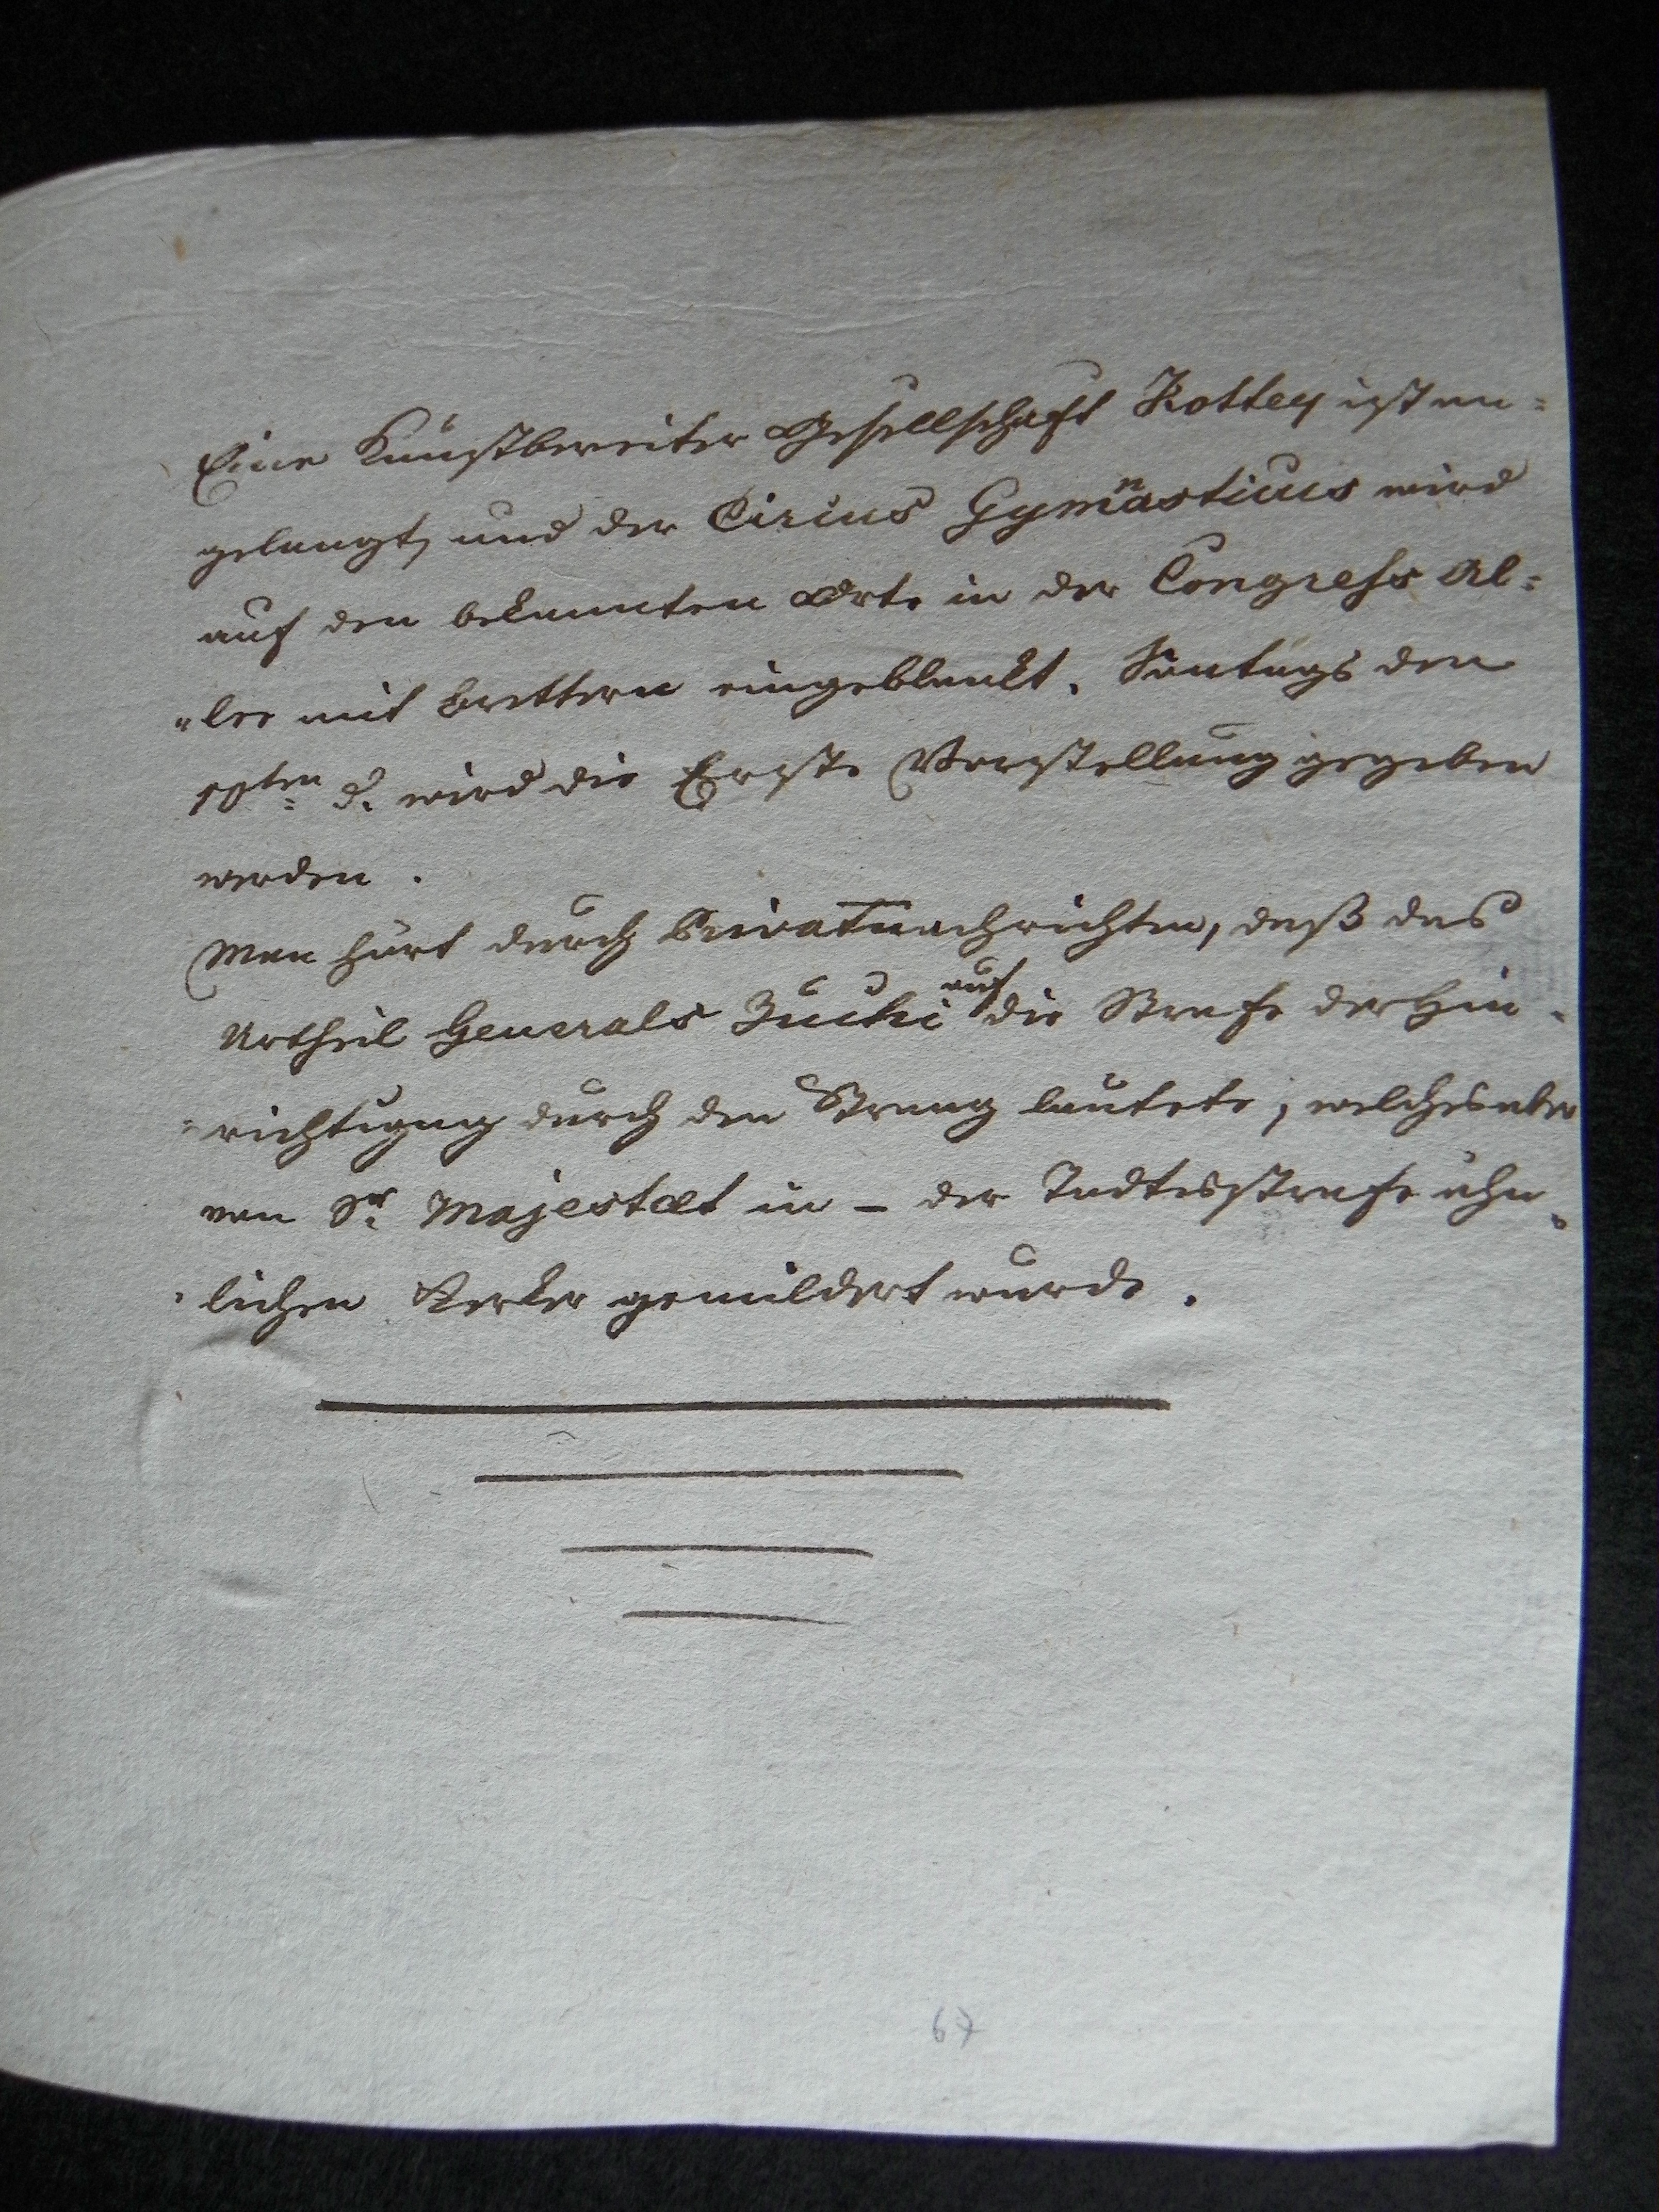 Eine Kunstbereiter Gesellschaft Kottey ist an=
gelangt, und der Circus Gymnasticus wird
auf den bekannten Orte in der Congress Al=
"lee mit Brettern eingeblankt. Sontags den
10ten d. wird die Erste Vorstellung gegeben
werden.
Man hört durch Privatnachrichten, daß das
Urtheil Generals Zuchi auf die Strafe der Hin-
-richtigung durch den Strang lautete, welches aber
von Sr Majestæt in – der Todtesstrafe ähn-
-lichen Kerker gemildert wurde.
67